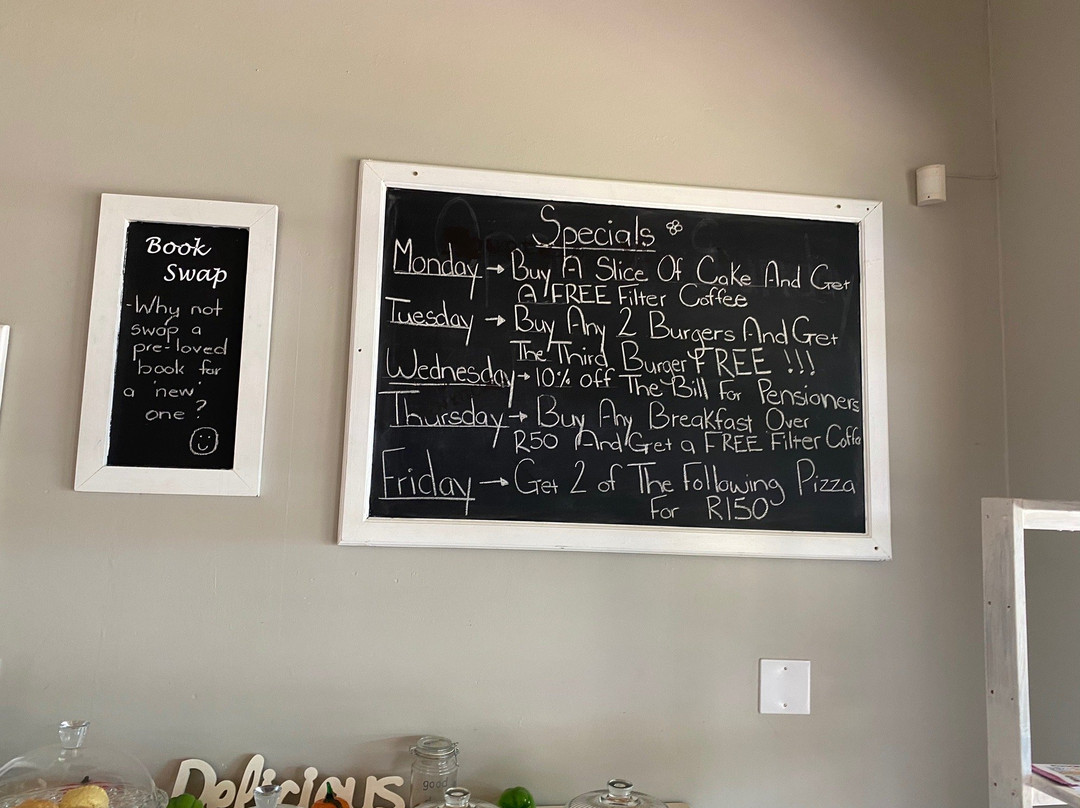 Book
Swap
-Why not
swap a
pre-loved
book for
a 'new'
one?
Specials
Monday → Buy A Slice Of Cake And Get
A FREE Filter Coffee
Tuesday → Buy Any 2 Burgers And Get
The Third Burger FREE !!!
Wednesday → 10% off The Bill For Pensioners
Thursday → Buy Any Breakfast Over
R50 And Get a FREE Filter Coffe
Friday → Get 2 of The Following Pizza
For R150
Delicious
good